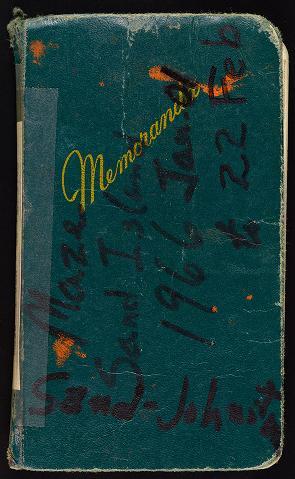 Memorandum
Maze
Sand Island
1966 Jan
& 22 Feb
Sand-Johnston